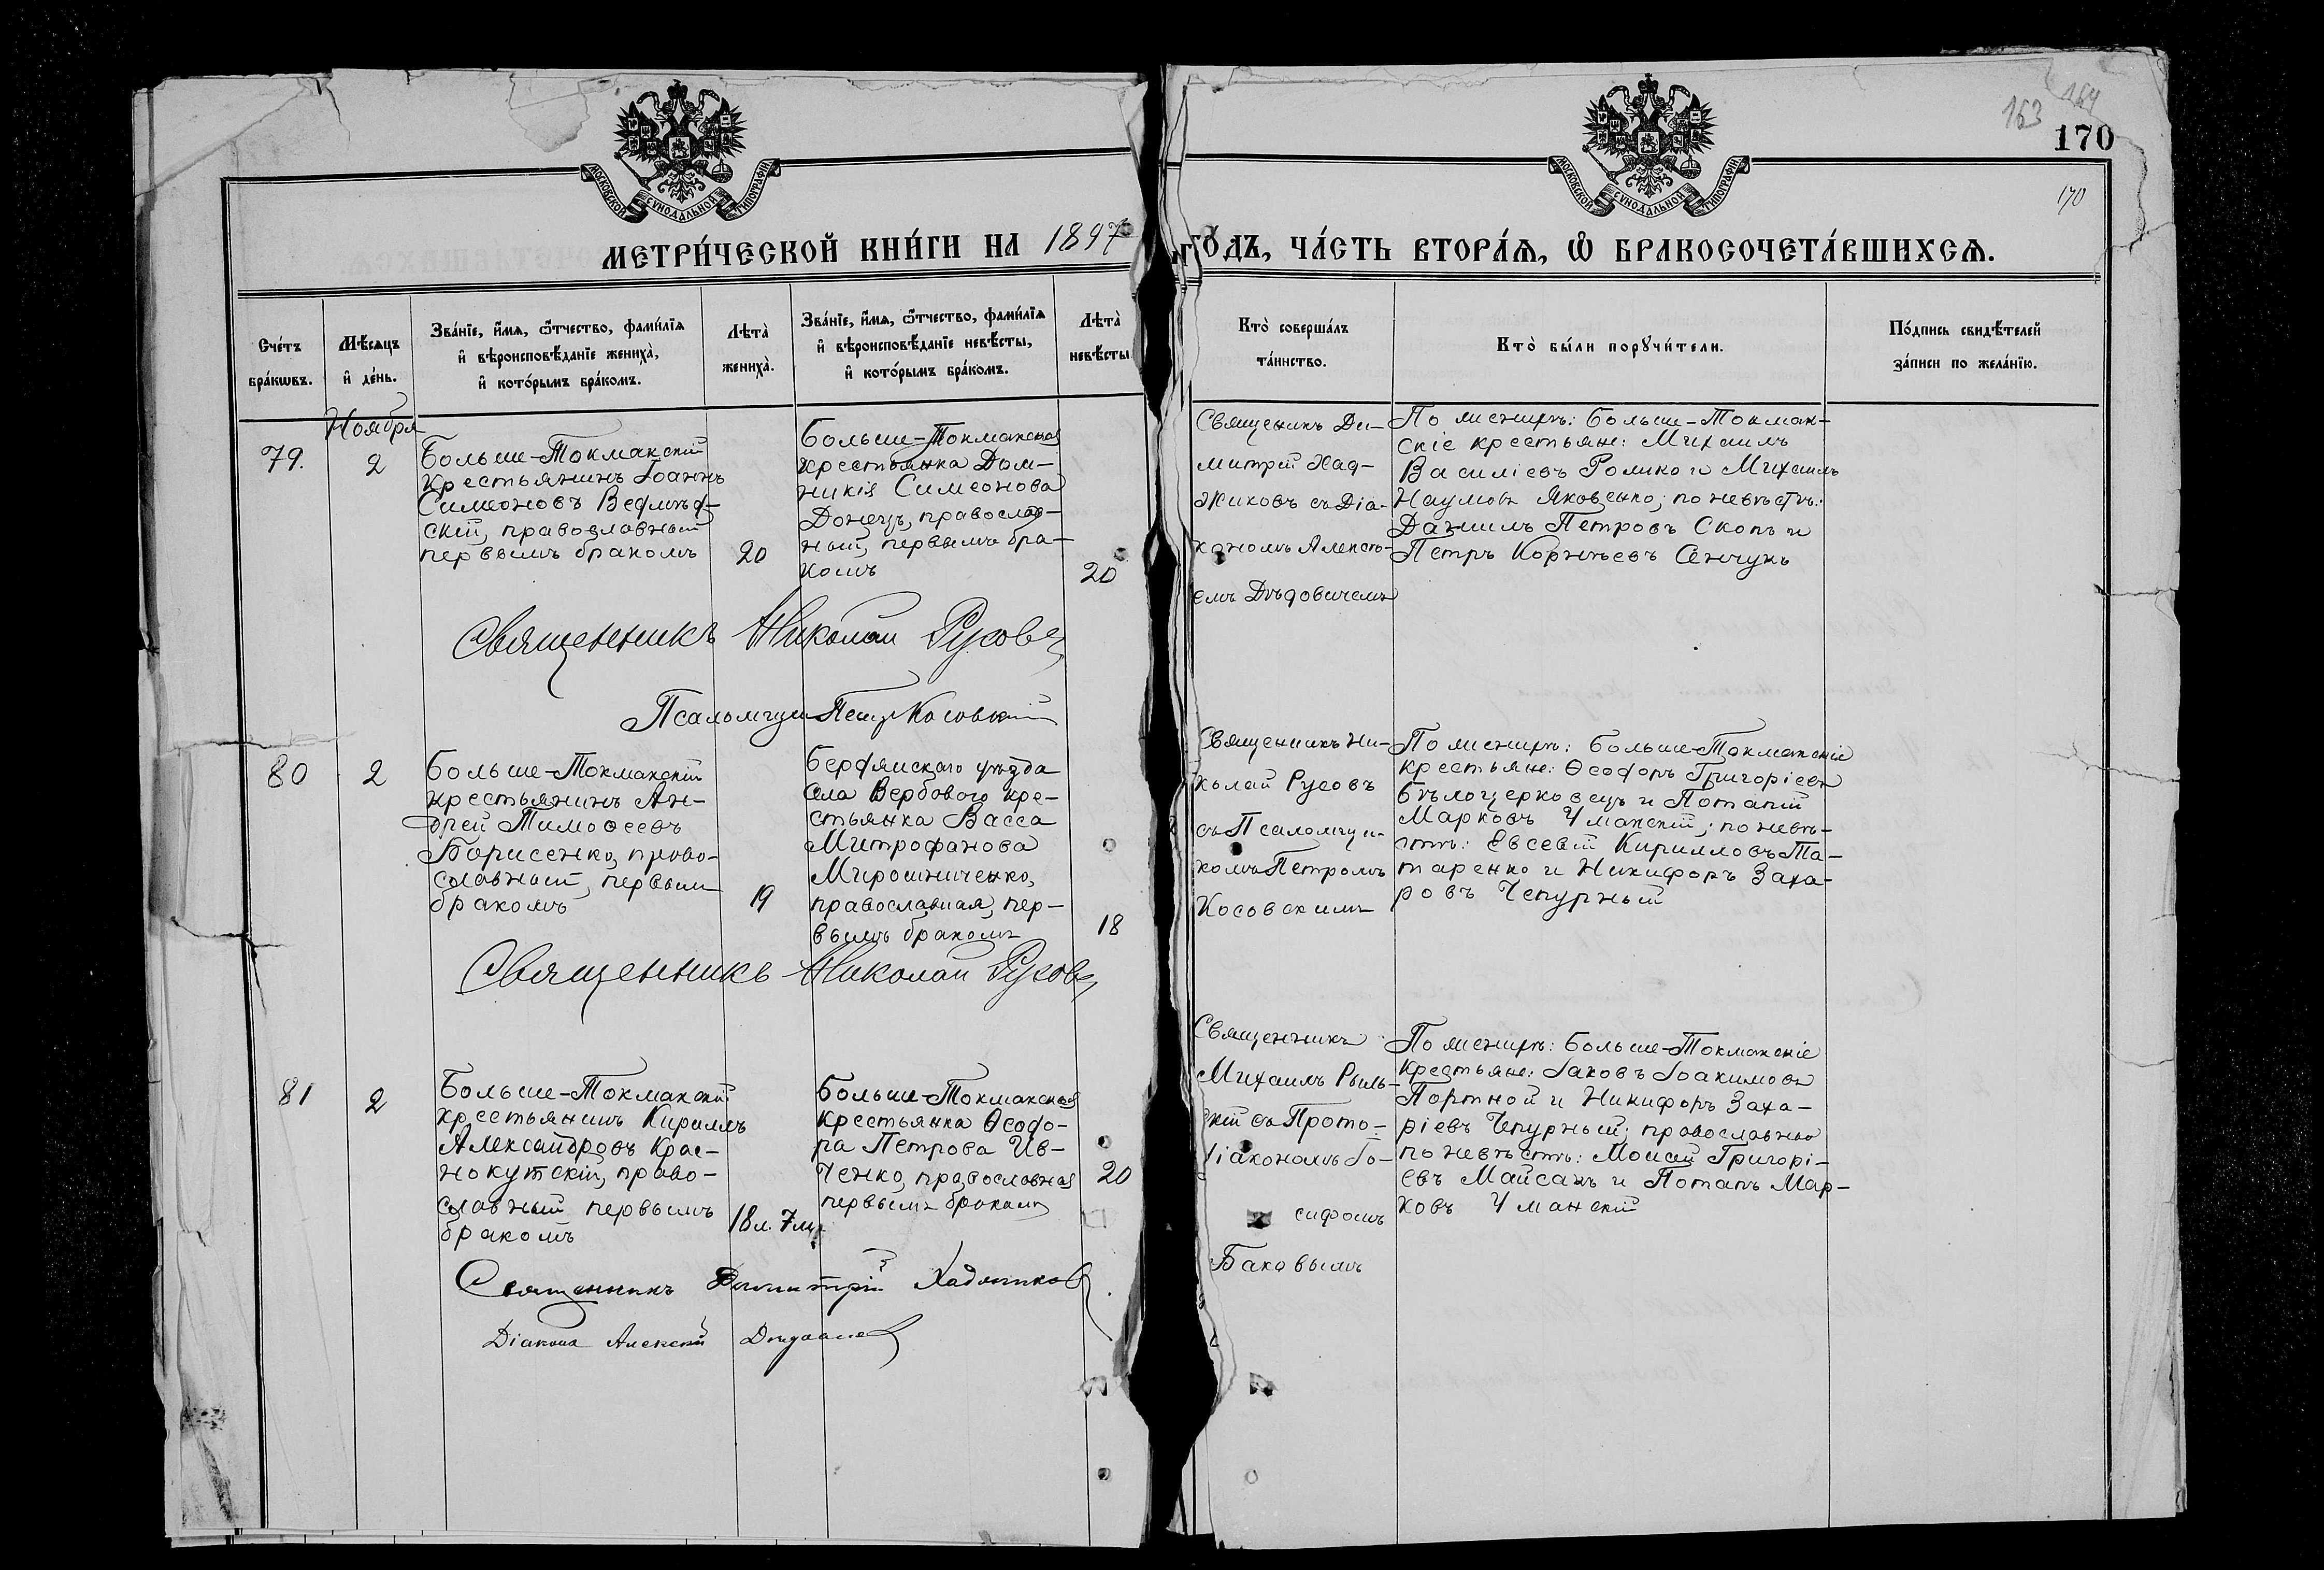 163 164
170
170
МОСКОВСКОЙ СѴНОДАЛЬНОЙ ТИПОГРАФІИ
МОСКОВСКОЙ СѴНОДАЛЬНОЙ ТИПОГРАФІИ
МЕТРИ́ЧЕСКОЙ КНИ́ГИ НА 1897
ГО́ДЪ, ЧА́СТЬ ВТОРА́Я, Ѡ҆ БРАКОСОЧЕТА́ВШИХСЯ.
Сче́тъ
бра́кѡвъ.
Мѣ́сяцъ
и҆ де́нь.
Зва́нїе, и҆́мя, ѻ҆́тчество, фами́лїя
и҆ вѣроисповѣ́данїе жениха̀,
и҆ кото́рымъ бра́комъ.
Лѣ́та̀
жениха̀.
Зва́нїе, и҆́мя, ѻ҆́тчество, фами́лїя
и҆ вѣроисповѣ́данїе невѣ́сты,
и҆ кото́рымъ бра́комъ.
Лѣ́та̀
невѣ́сты
Кто̀ соверша́лъ
та́инство.
Кто̀ бы́ли порꙋчи́тели.
По́дпись свидѣ́телей
за́писи по жела́нїю.
Ноября
79.
2
Больше-Токмакскій
крестьянинъ Іоаннъ
Симеоновъ
скій, православный
первымъ бракомъ
20
Больше-Токмакская
крестьянка Дом-
никія Симеонова
Донецъ, православ-
ный, первымъ бра-
комъ
20
Священикъ Ди-
митрій Хад-
жиковъ съ Діа-
кономъ Алексѣ-
емъ Дѣдовичемъ
По женихѣ: Больше-Токмак-
скіе крестьяне: Михаилъ
Василіевъ Ролико и Михаилъ
Наумовъ Яковенко; по невѣстѣ:
Даніилъ Петровъ Скопъ и
Петръ Корнѣевъ Сенчукъ
Священникъ Николай Русовъ
Псаломщикъ Петръ Косовскій
80
2
Больше-Токмакскій
крестьянинъ Ан-
дрей Тимоѳеевъ
Борисенко, право-
славный, первымъ
бракомъ
19
Бердянскаго уѣзда
села Вербового кре-
стьянка Васса
Митрофанова
Мирошниченко,
православная, пер-
вымъ бракомъ
18
Священникъ Ни-
колай Русовъ
съ Псаломщи-
комъ Петромъ
Косовскимъ
По женихѣ: Больше-Токмакскіе
крестьяне: Ѳеодоръ Григоріевъ
Бѣлоцерковецъ и Потапій
Марковъ Уманскій; по невѣ-
стѣ: Евсевій Кирилловъ Та-
таренко и Никифоръ Заха-
ровъ Чепурный
Священникъ Николай Русовъ
81
2
Больше-Токмакскій
крестьянинъ Кириллъ
Александровъ Крас-
нокутскій, право-
славный первымъ
бракомъ
18 л. 7 м.
Больше-Токмакская
крестьянка Ѳеодо-
ра Петрова Ив-
ченко, православная
первымъ бракомъ
20
Священникъ
Михаилъ Рыль-
скій съ Прото-
діакономъ Іо-
сифомъ
Баковымъ
По женихѣ: Больше-Токмакскіе
крестьяне: Іаковъ Іоакимовъ
Портной и Никифоръ Заха-
ріевъ Чепурный; православные
по невѣстѣ: Моисей Григорі-
евъ Майсакъ и Потапъ Мар-
ковъ Уманскій
Священникъ Димитрій Хаджиковъ
Діаконъ Алексѣй